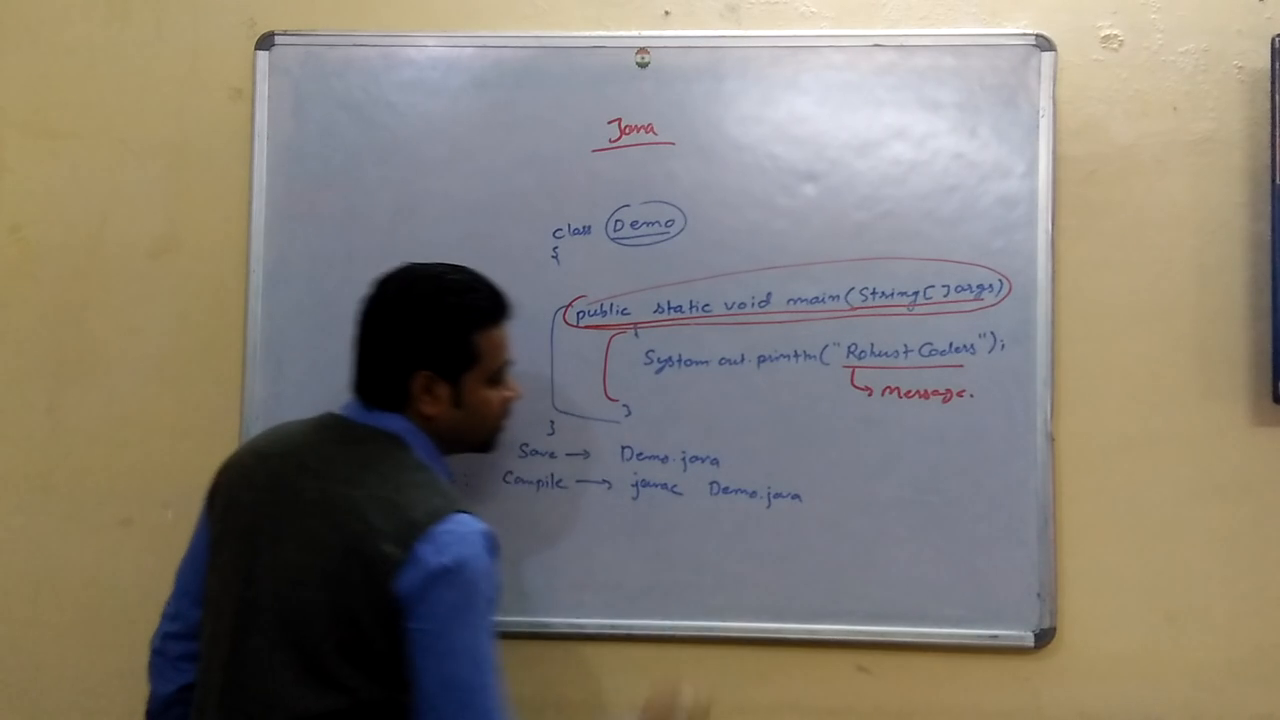 Java
class Demo
{
public static void main(String[] args)
{
System.out.println("Robust Coders");
Message.
}
}
Save → Demo.java
Compile → javac Demo.java